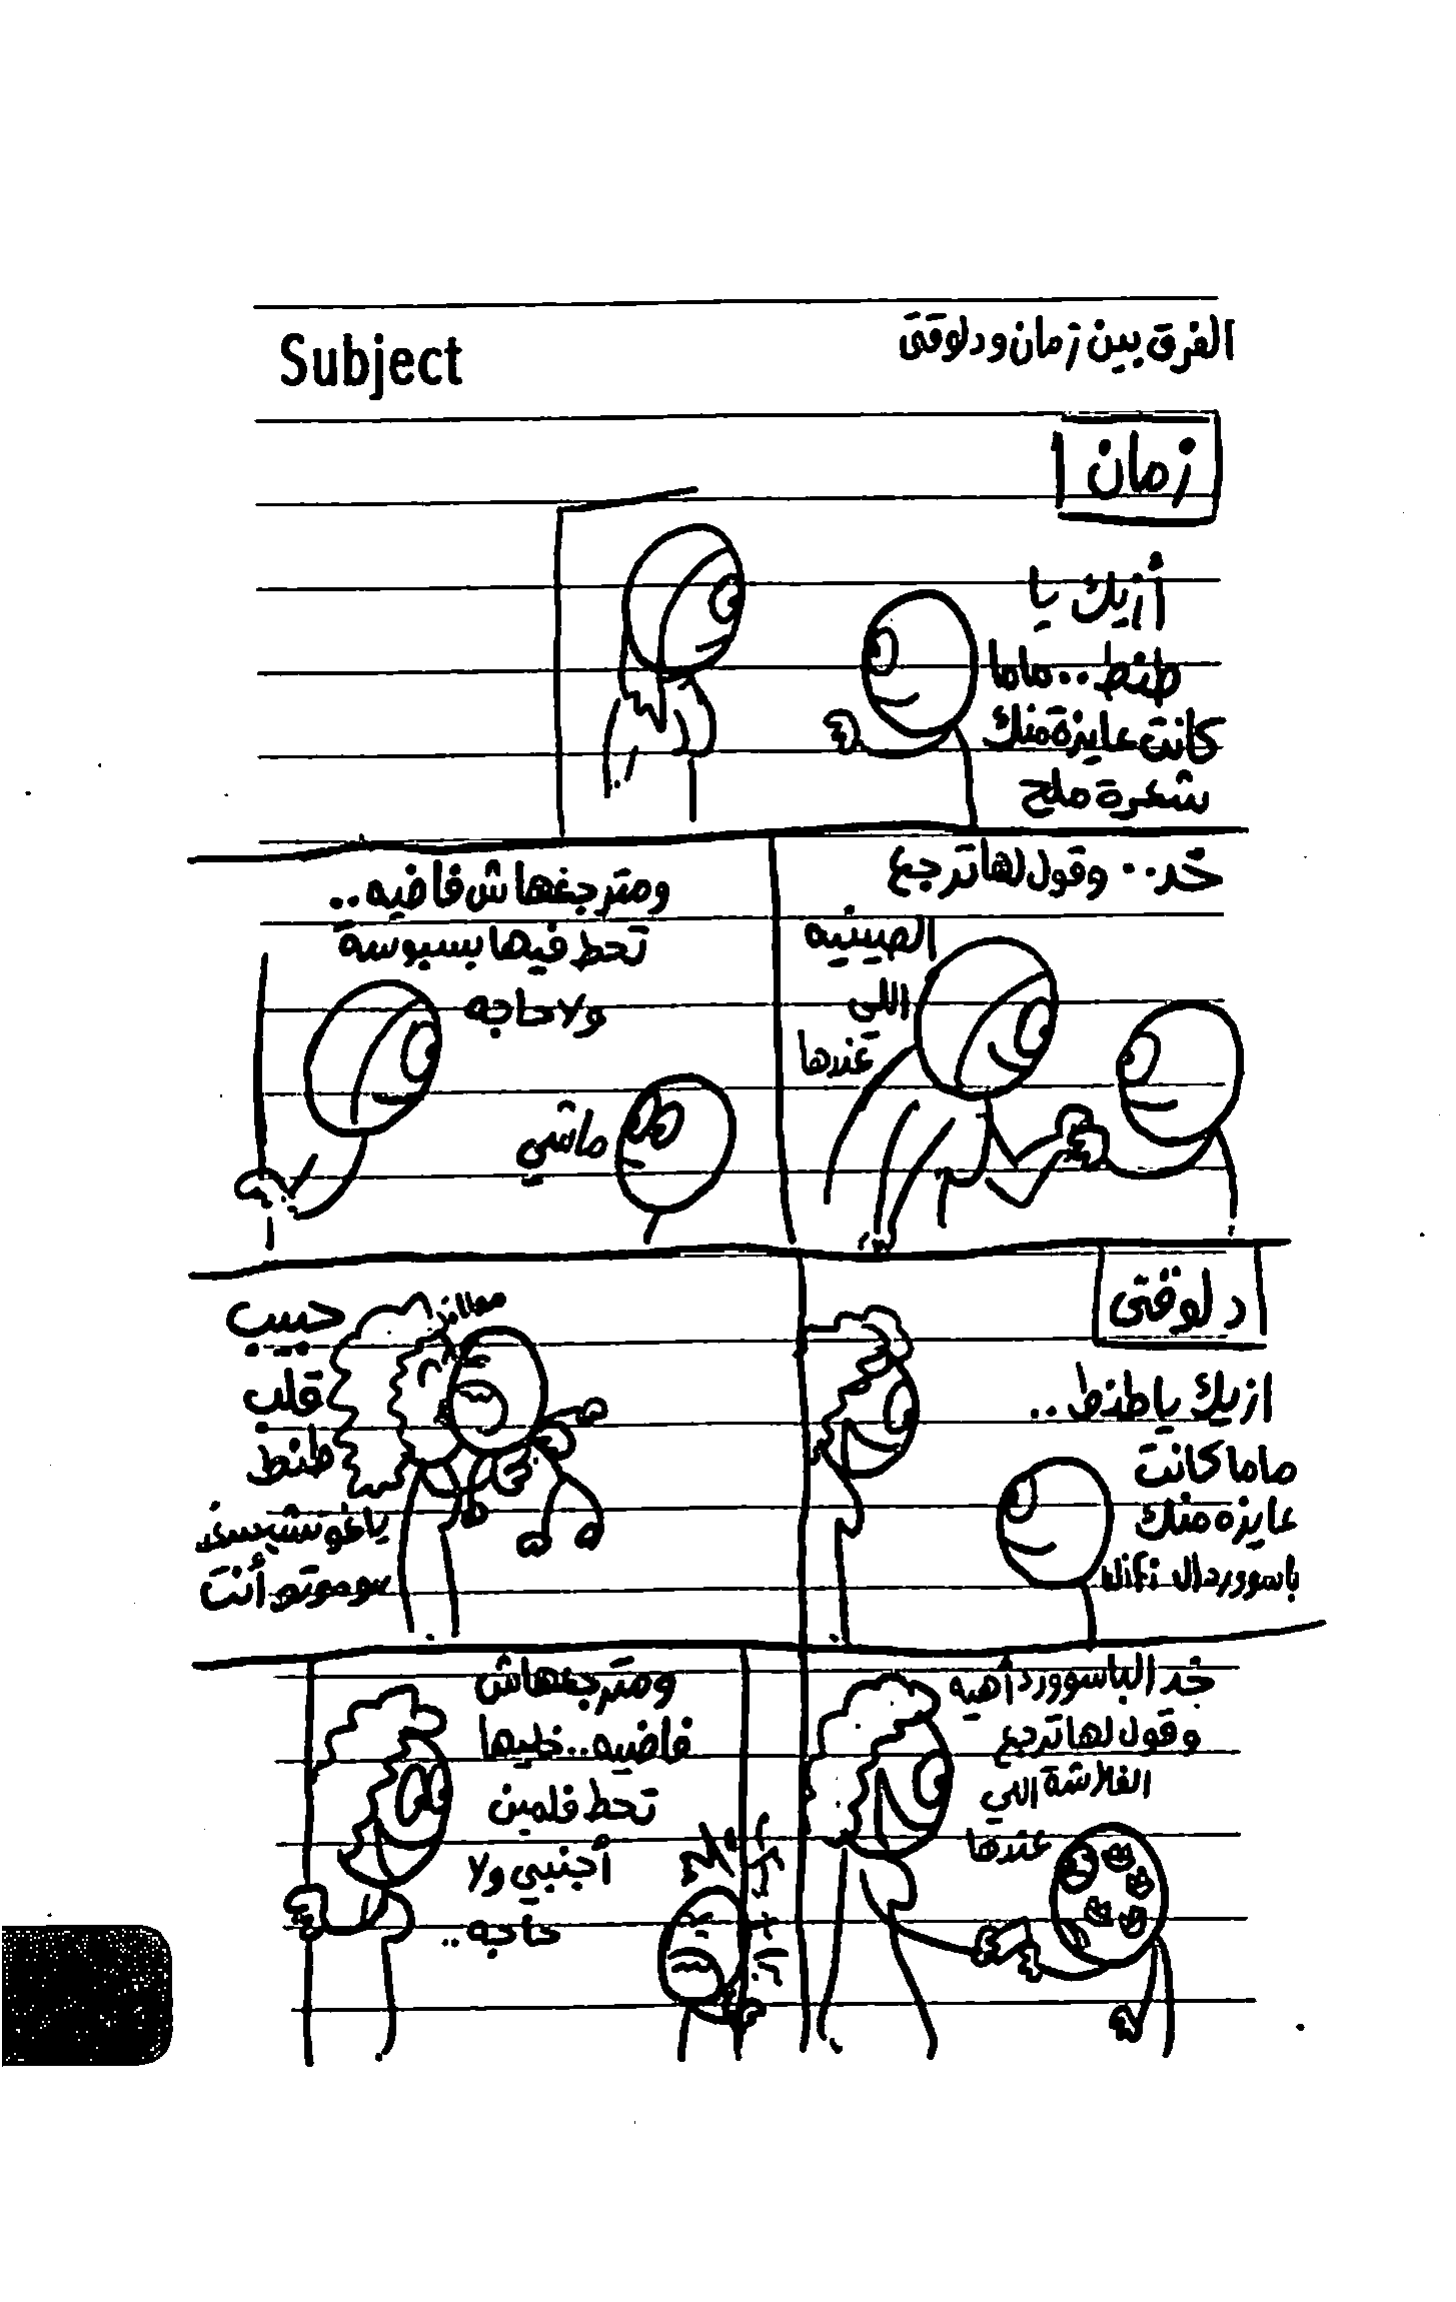 الفرق بين زمان ودلوقتى
Subject
زمان
أزيك يا
طنط.. ماما
كانت عايزة منك
شعرة ملح
خد.. وقول لها ترجع
الصينيه
اللي
عندها
ومترجعهاش فاضيه..
تحط فيها بسبوسة
ولا حاجه
ماشي
دلوقتى
ازيك يا طنط..
ماما كانت
عايزه منك
باسوورد ال wifi
حبيب
قلب
طنط
أنت
خد الباسوورد أهيه
وقول لها ترجع
الفلاشة اللي
عندها
ومترجعهاش
فاضيه.. خليها
تحط فلمين
أجنبي ولا
حاجه..